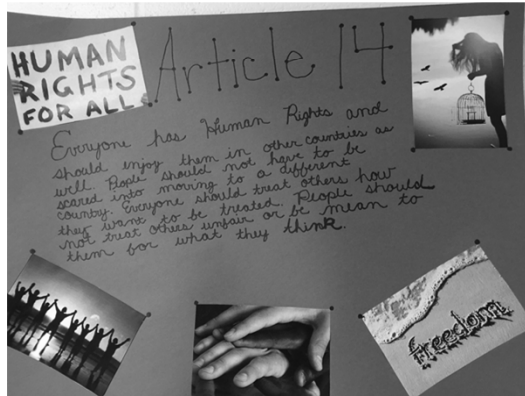 HUMAN
RIGHTS
FOR ALL
Article 14
Everyone has Human Rights and
should enjoy them in other countries as
well. People should not have to be
scared into moving to a different
country. Everyone should treat others how
they want to be treated. People should
not treat others unfair or be mean to
them for what they think.
freedom